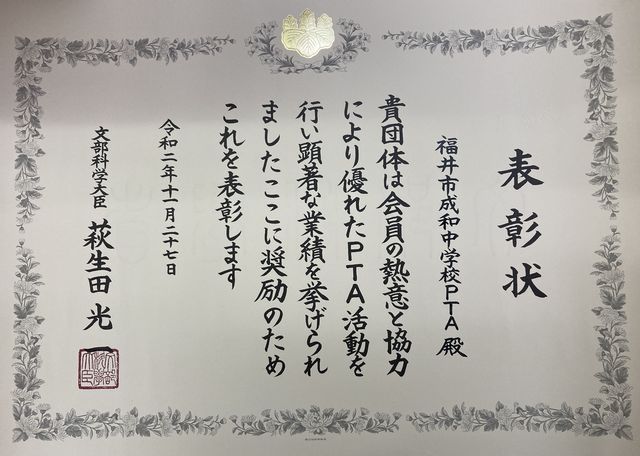 表彰状
福井市成和中学校PTA 殿
貴団体は会員の熱意と協力
により優れたPTA活動を
行い顕著な業績を挙げられ
ましたここに奨励のため
これを表彰します
令和二年十一月二十七日
文部科学大臣 萩生田光一